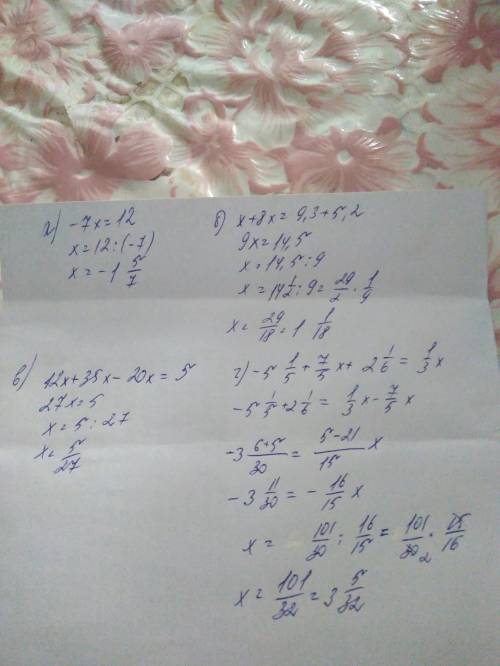 а) -7x=12
x=12:(-7)
x=-1 5/7
б) x+8x=9,3+5,2
9x=14,5
x=14,5:9
x=14 1/2:9=29/2·1/9
x=29/18=1 1/18
в) 12x+35x-20x=5
27x=5
x=5:27
x=5/27
г) -5 1/5+7/5x+2 1/6=1/3x
-5 1/5+2 1/6=1/3x-7/5x
-3 6+5/30=5-21/15x
-3 11/30=-16/15x
x=101/30:16/15=101/30 2·15/16
x=101/32=3 5/32